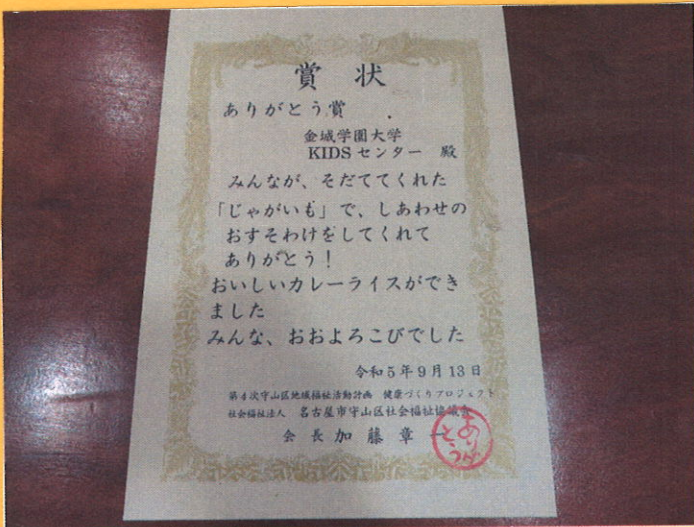 賞状
ありがとう賞
金城学園大学
KIDSセンター 殿
みんなが、そだててくれた
「じゃがいも」で、しあわせの
おすそわけをしてくれて
ありがとう！
おいしいカレーライスができ
ました
みんな、おおよろこびでした
令和5年9月13日
第4次守山区地域福祉活動計画 健康づくりプロジェクト
社会福祉法人 名古屋市守山区社会福祉協議会
会長 加藤章一
ありがとう